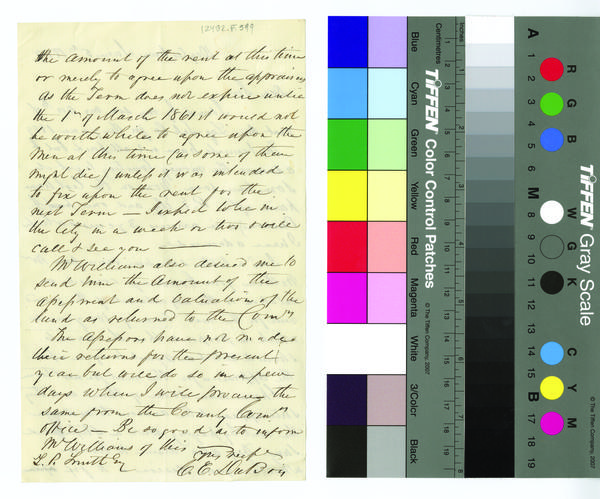 12492.F.599
the amount of the rent at this time
or merely to agree upon the appraisers
As the Term does not expire until
the 1st of March 1861 it would not
be worth while to agree upon the
men at this time (as some of them
might die) unless it was intended
to fix upon the rent for the
next Term — I expect to be in
the City in a week or two & will
call & see you —
Mr Williams also desired me to
send him the amount of the
assessment and valuation of the
land as returned to the Comrs
The Assessors have not made
their returns for the present
year but will do so in a few
days when I will procure the
same from the County Comrs
office — Be so good as to inform
Mr Williams of this
Yours respy
L. P. Smith Esq
C. E. DuBois
Blue
Cyan
Green
Yellow
Red
Magenta
White
3/Color
Black
TIFFEN Color Control Patches
© The Tiffen Company, 2007
Centimetres
Inches
1 2 3 4 5 6 7 8 9 10 11 12 13 14 15 16 17 18 19
1 2 3 4 5 6 7 8
A 1 2 3 4 5 6 M 8 9 10 11 12 13 14 15 B 17 18 19
R G B
W G K
C Y M
TIFFEN Gray Scale
© The Tiffen Company, 2007